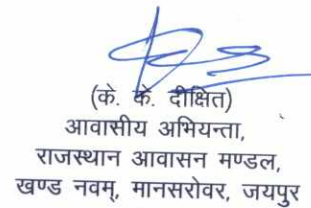 (के. के. दीक्षित)
आवासीय अभियन्ता,
राजस्थान आवासन मण्डल,
खण्ड नवम्, मानसरोवर, जयपुर